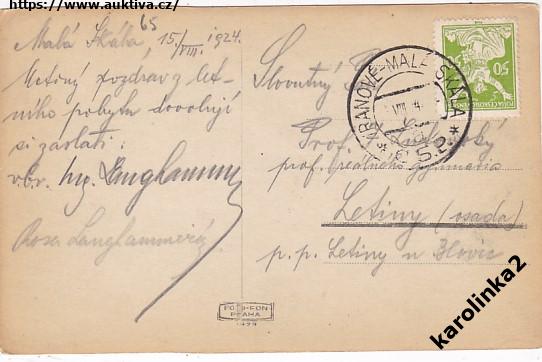 https://www.auktiva.cz/
65
Malá Skála, 15./VIII. 1924.
Uctivý pozdrav z let-
ního pobytu dovoluji
si zaslati:
Ing. Langhammer
Rosa Langhammerová
Slovutný
Prof.
prof. reálného gymnasia
Letiny (osada)
p. p. Letiny u Blovic
VRANOVÉ-MALÁ SKÁLA
VIII
50
POŠTA ČESKOSLOVENSKÁ
FOTO-FON
PRAHA
karolinka2